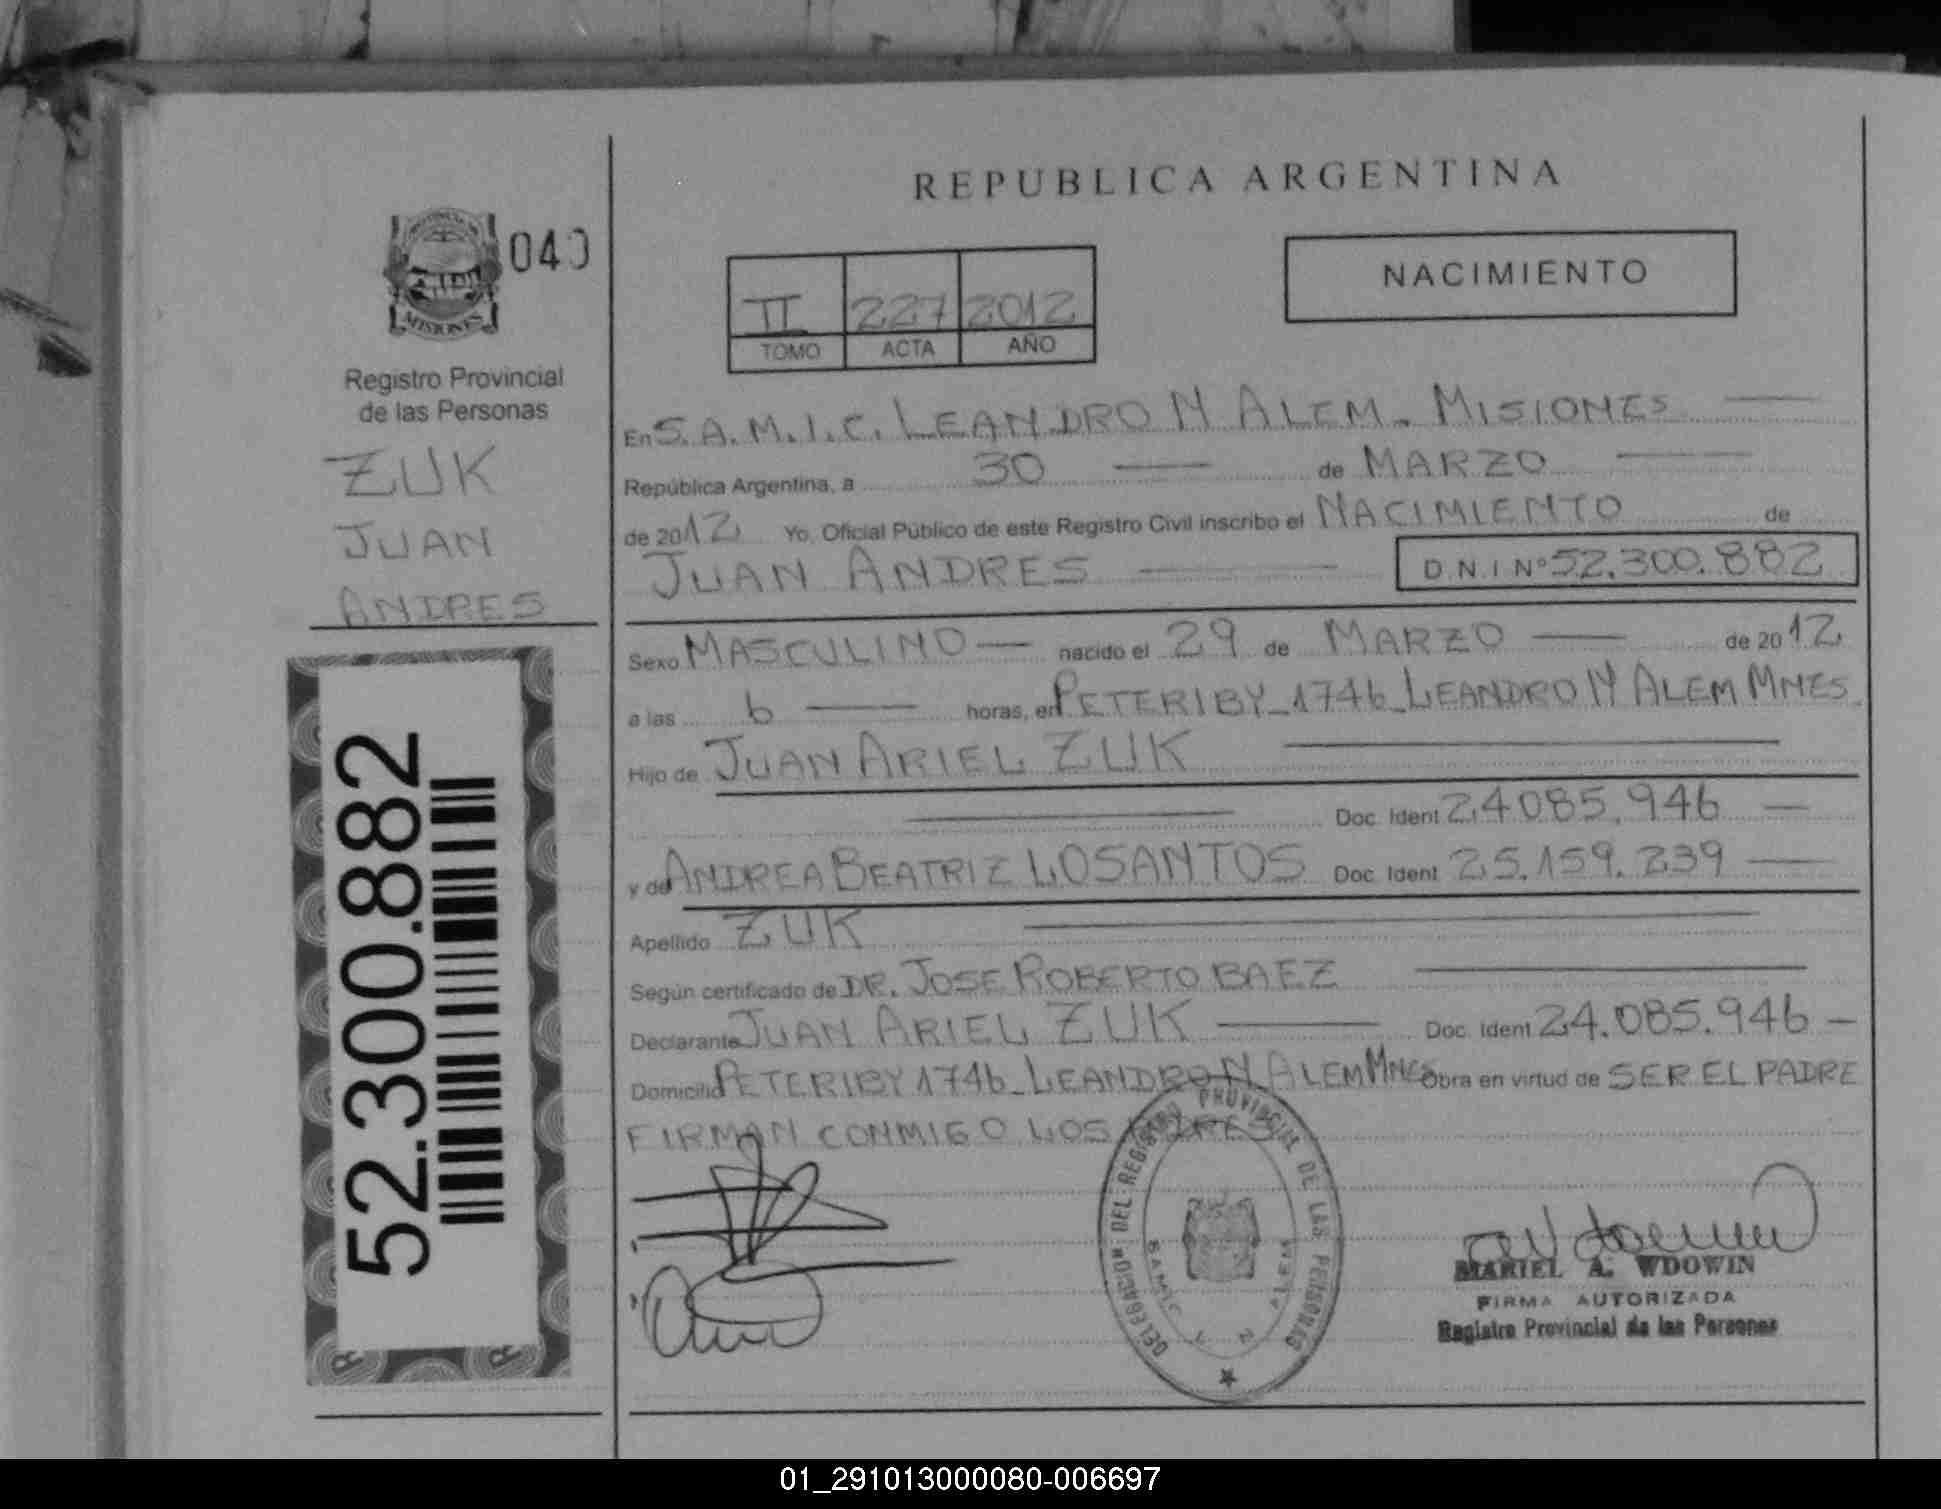 REPUBLICA ARGENTINA
NACIMIENTO
II 227 2012
TOMO ACTA AÑO
MISIONES
Registro Provincial
de las Personas
ZUK
JUAN
ANDRES
52.300.882
En S.A.M.I.C. LEANDRO N ALEM. MISIONES
República Argentina, a 30 de MARZO
de 2012 Yo, Oficial Público de este Registro Civil inscribo el NACIMIENTO de
JUAN ANDRES D.N.I Nº 52.300.882
Sexo MASCULINO nacido el 29 de MARZO de 2012
a las 6 horas, en PETERIBY_1746_LEANDRO N ALEM MNES
Hijo de JUAN ARIEL ZUK
Doc. Ident 24.085.946
y de ANDREA BEATRIZ LOSANTOS Doc. Ident 25.159.239
Apellido ZUK
Según certificado de DR. JOSE ROBERTO BAEZ
Declarante JUAN ARIEL ZUK Doc. Ident 24.085.946
Domicilio PETERIBY 1746_LEANDRO N ALEM MNES Obra en virtud de SER EL PADRE
FIRMAN CONMIGO LOS PADRES
DELEGACION DEL REGISTRO PROVINCIAL DE LAS PERSONAS
SAMIC L. N. ALEM
MARIEL A. WDOWIN
FIRMA AUTORIZADA
Registro Provincial de las Personas
01_291013000080-006697